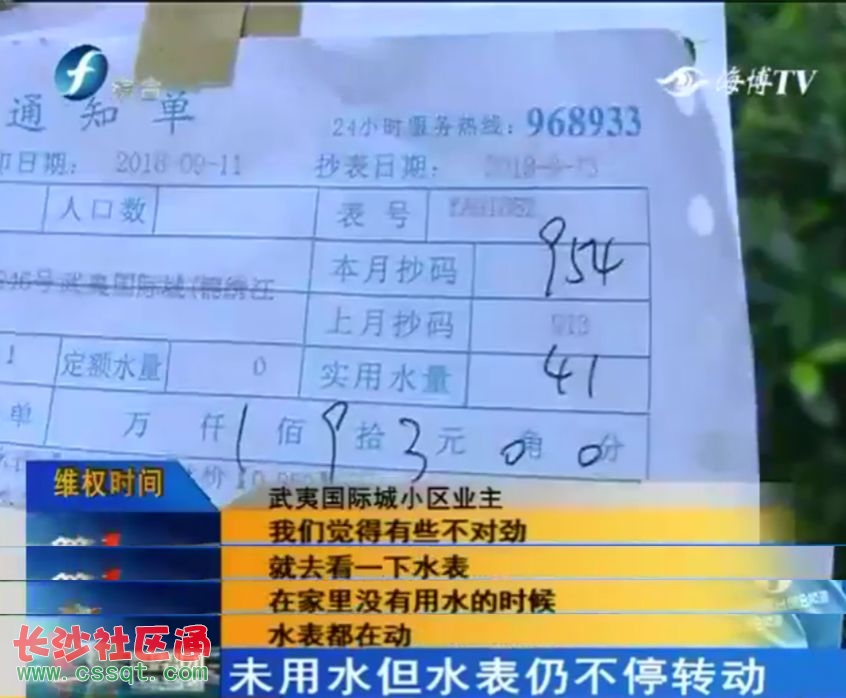 综合
海博TV
通知单
24小时服务热线：968933
印日期：2018-09-11 抄表日期：
人口数 表号
本月抄码 954
号武夷国际城(锦绣江
上月抄码 913
1 定额水量 0 实用水量 41
单 万 仟 1 佰 9 拾 3 元 0 角 0 分
价
维权时间
武夷国际城小区业主
我们觉得有些不对劲
就去看一下水表
在家里没有用水的时候
水表都在动
长沙社区通
www.cssqt.com
未用水但水表仍不停转动